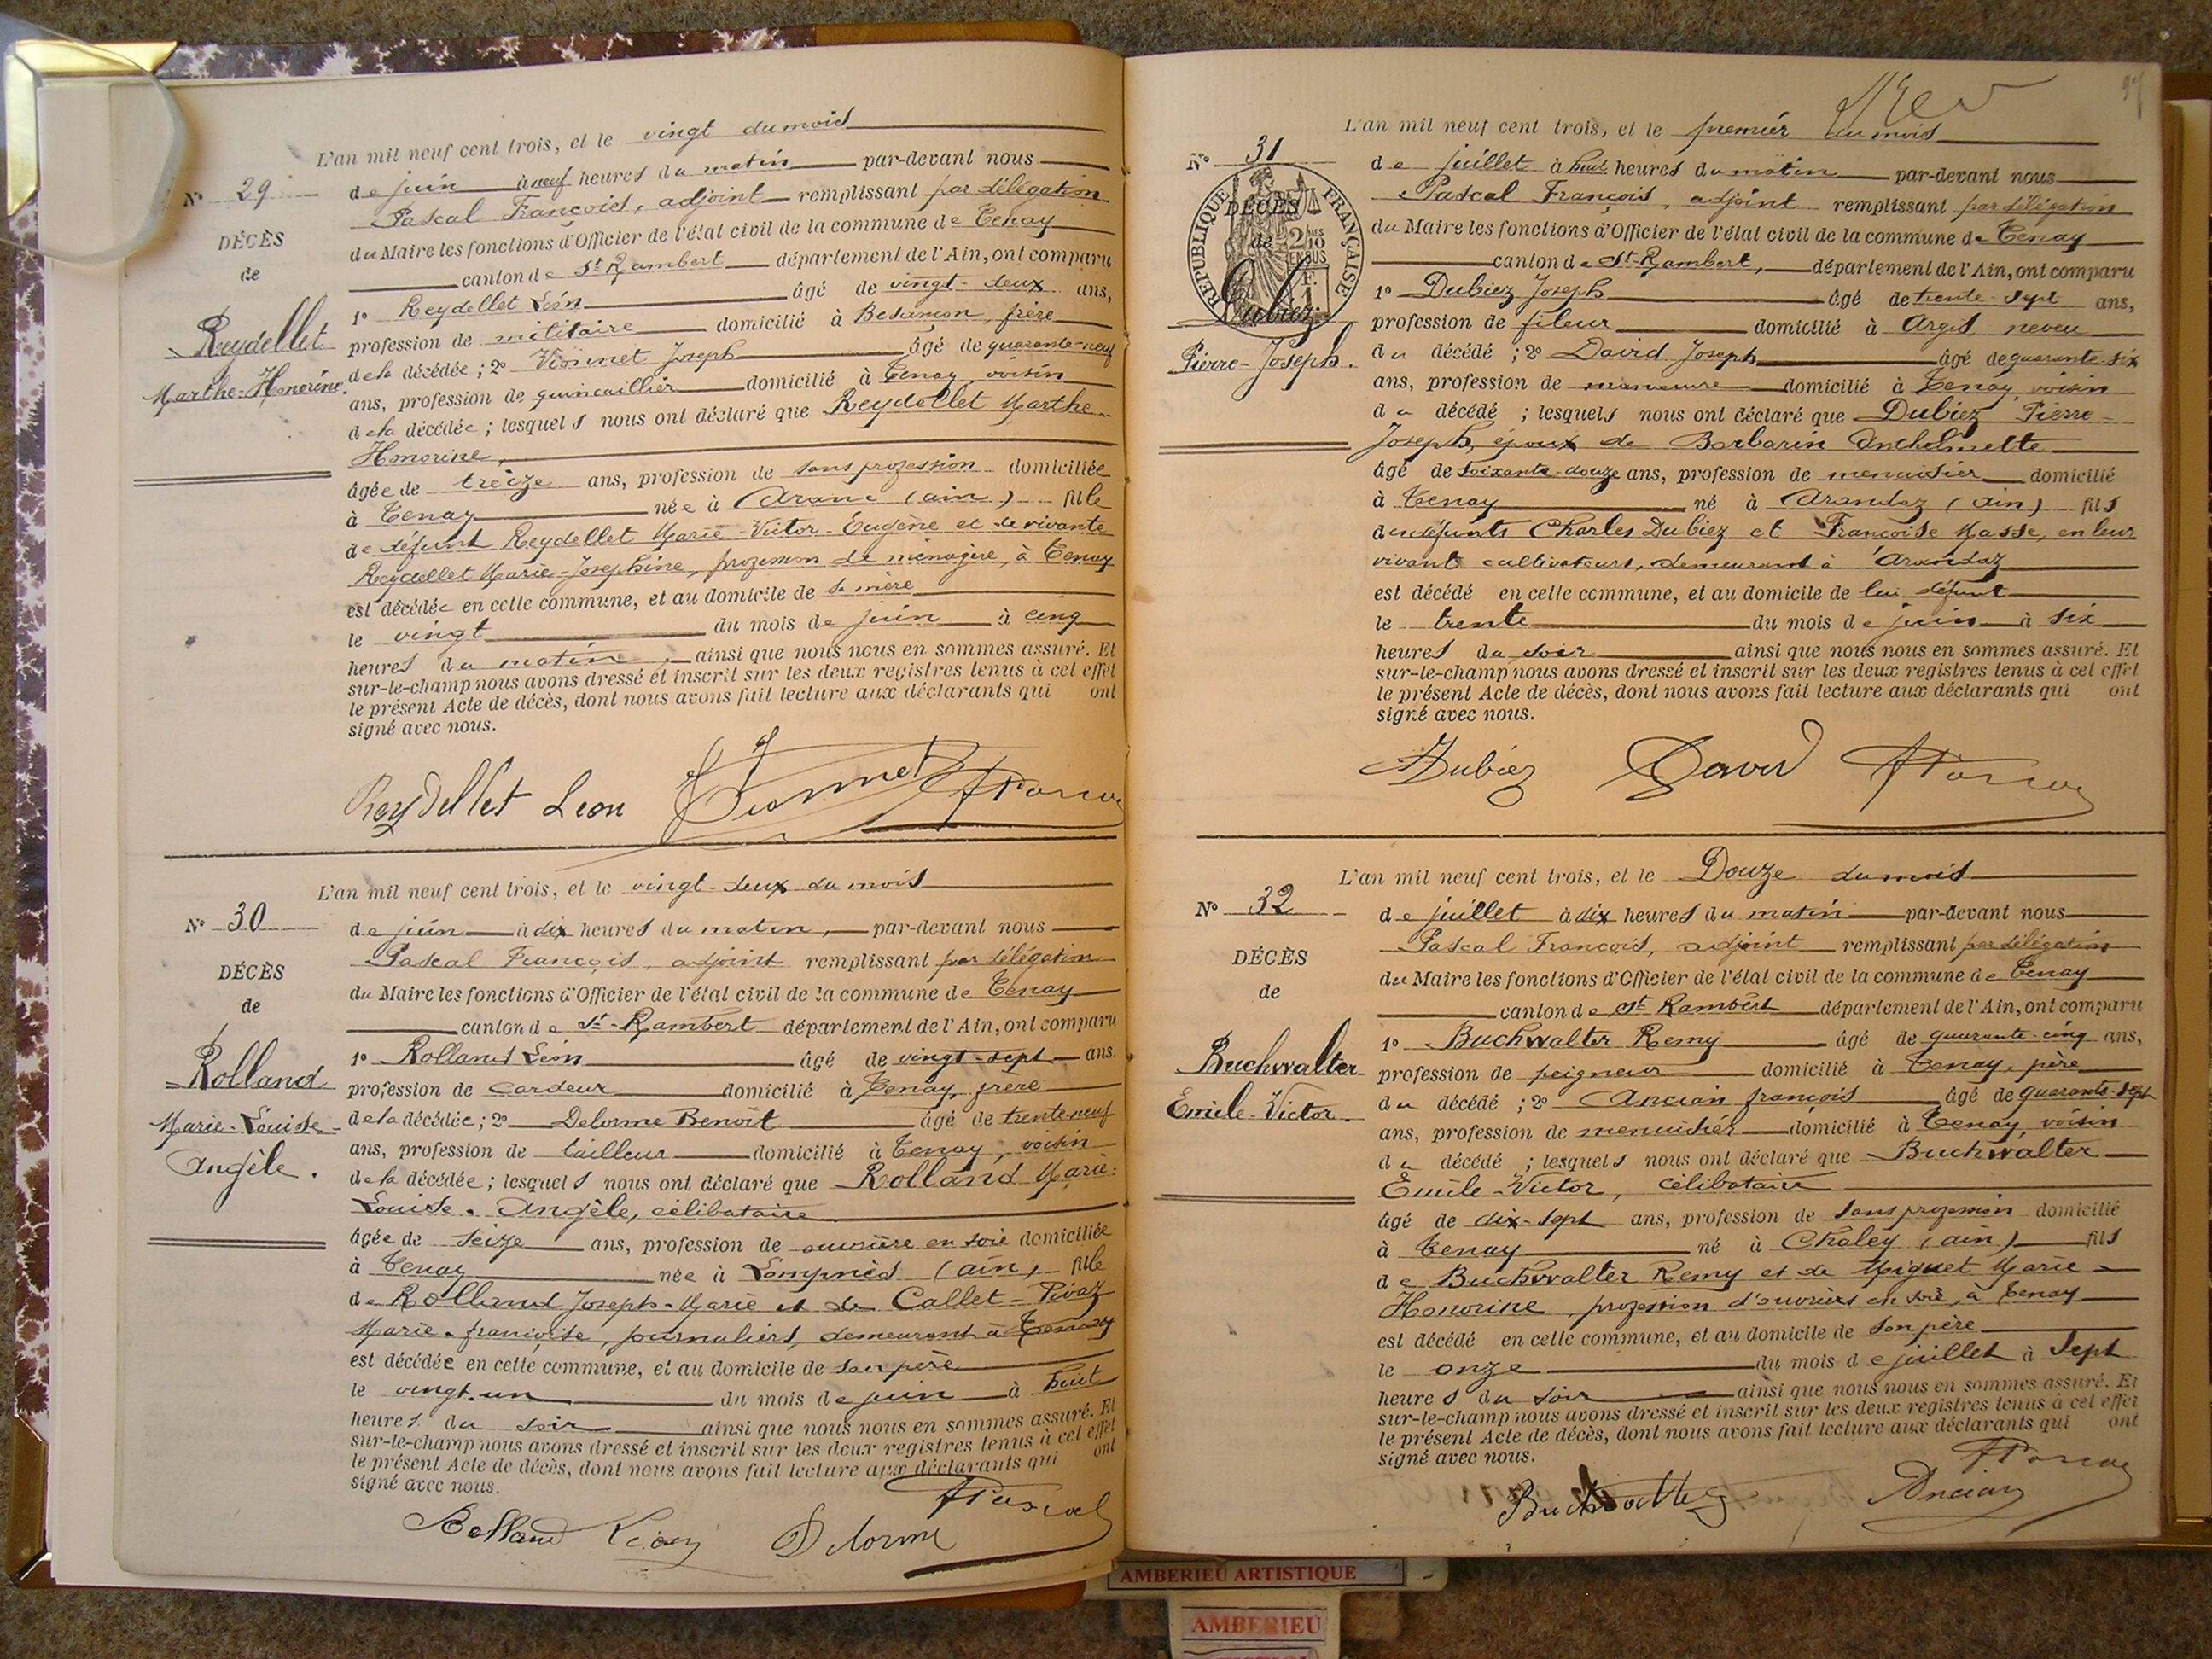 L'an mil neuf cent trois, et le vingt du mois
N° 29
de juin à neuf heures du matin par-devant nous
Pascal François, adjoint remplissant par délégation
DÉCÈS
du Maire les fonctions d'Officier de l'état civil de la commune de Tenay
de
canton de St Rambert département de l'Ain, ont comparu
1° Reydellet Léon âgé de vingt-deux ans,
Reydellet
profession de militaire domicilié à Besançon, frère
de la décédée ; 2° Vionnet Joseph âgé de quarante-neuf
Marthe-Honorine.
ans, profession de quincaillier domicilié à Tenay, voisin
de la décédée ; lesquels nous ont déclaré que Reydellet Marthe
Honorine,
âgée de treize ans, profession de sans profession domiciliée
à Tenay née à Aranc (ain) fille
de défunt Reydellet Marie-Victor-Eugène et de vivante
Reydellet Marie-Josephine, profession de ménagère, à Tenay
est décédée en cette commune, et au domicile de sa mère
le vingt du mois de juin à cinq
heures du matin, ainsi que nous nous en sommes assuré. Et
sur-le-champ nous avons dressé et inscrit sur les deux registres tenus à cet effet
le présent Acte de décès, dont nous avons fait lecture aux déclarants qui ont
signé avec nous.
Reydellet Leon Vionnet FPascal
L'an mil neuf cent trois, et le vingt-deux du mois
N° 30
de juin à dix heures du matin, par-devant nous
Pascal François, adjoint remplissant par délégation
DÉCÈS
du Maire les fonctions d'Officier de l'état civil de la commune de Tenay
de
canton de St-Rambert département de l'Ain, ont comparu
1° Rolland Léon âgé de vingt-sept ans.
Rolland
profession de cardeur domicilié à Tenay, frère
Marie-Louise-
de la décédée ; 2° Delorme Benoît âgé de trente-neuf
ans, profession de tailleur domicilié à Tenay, voisin
Angèle.
de la décédée ; lesquels nous ont déclaré que Rolland Marie-
Louise-Angèle, célibataire
âgée de seize ans, profession de ouvrière en soie domiciliée
à Tenay née à Lompnès (ain) fille
de Rolland Joseph-Marie et de Callet-Pivaz
Marie-françoise, journaliers, demeurant à Tenay
est décédée en cette commune, et au domicile de son père
le vingt-un du mois de juin à huit
heures du soir ainsi que nous nous en sommes assuré. Et
sur-le-champ nous avons dressé et inscrit sur les deux registres tenus à cet effet
le présent Acte de décès, dont nous avons fait lecture aux déclarants qui ont
signé avec nous.
FPascal
Rolland Léon Delorme
L'an mil neuf cent trois, et le premier du mois
N° 31
de juillet à huit heures du matin par-devant nous
RÉPUBLIQUE FRANÇAISE
Pascal François, adjoint remplissant par délégation
DÉCÈS
du Maire les fonctions d'Officier de l'état civil de la commune de Tenay
de
canton de St-Rambert, département de l'Ain, ont comparu
1° Dubiez Joseph âgé de trente-sept ans,
Dubiez
profession de fileur domicilié à Argis neveu
Pierre-Joseph.
du décédé ; 2° David Joseph âgé de quarante-six
ans, profession de manœuvre domicilié à Tenay, voisin
du décédé ; lesquels nous ont déclaré que Dubiez Pierre-
Joseph, époux de Barbarin Anthelmette
âgé de soixante-douze ans, profession de menuisier domicilié
à Tenay né à Arandaz (ain) fils
de défunts Charles Dubiez et Françoise Masse, en leur
vivant cultivateurs, demeurant à Arandaz
est décédé en cette commune, et au domicile de lui défunt
le trente du mois de juin à six
heures du soir ainsi que nous nous en sommes assuré. Et
sur-le-champ nous avons dressé et inscrit sur les deux registres tenus à cet effet
le présent Acte de décès, dont nous avons fait lecture aux déclarants qui ont
signé avec nous.
Dubiez David FPascal
L'an mil neuf cent trois, et le Douze du mois
N° 32
de juillet à dix heures du matin par-devant nous
Pascal François, adjoint remplissant par délégation
DÉCÈS
du Maire les fonctions d'Officier de l'état civil de la commune de Tenay
de
canton de St Rambert département de l'Ain, ont comparu
1° Buchwalter Remy âgé de quarante-cinq ans,
Buchwalter
profession de peigneur domicilié à Tenay, père
Emile-Victor.
du décédé ; 2° Ancian françois âgé de quarante-sept
ans, profession de menuisier domicilié à Tenay, voisin
du décédé ; lesquels nous ont déclaré que Buchwalter
Emile-Victor, célibataire
âgé de dix-sept ans, profession de sans profession domicilié
à Tenay né à Chaley (ain) fils
de Buchwalter Remy et de Miguet Marie-
Honorine, profession d'ouvriers en soie, à Tenay
est décédé en cette commune, et au domicile de son père
le onze du mois de juillet à sept
heures du soir ainsi que nous nous en sommes assuré. Et
sur-le-champ nous avons dressé et inscrit sur les deux registres tenus à cet effet
le présent Acte de décès, dont nous avons fait lecture aux déclarants qui ont
signé avec nous.
FPascal
Buchwalter Ancian
AMBERIEU ARTISTIQUE
AMBERIEU